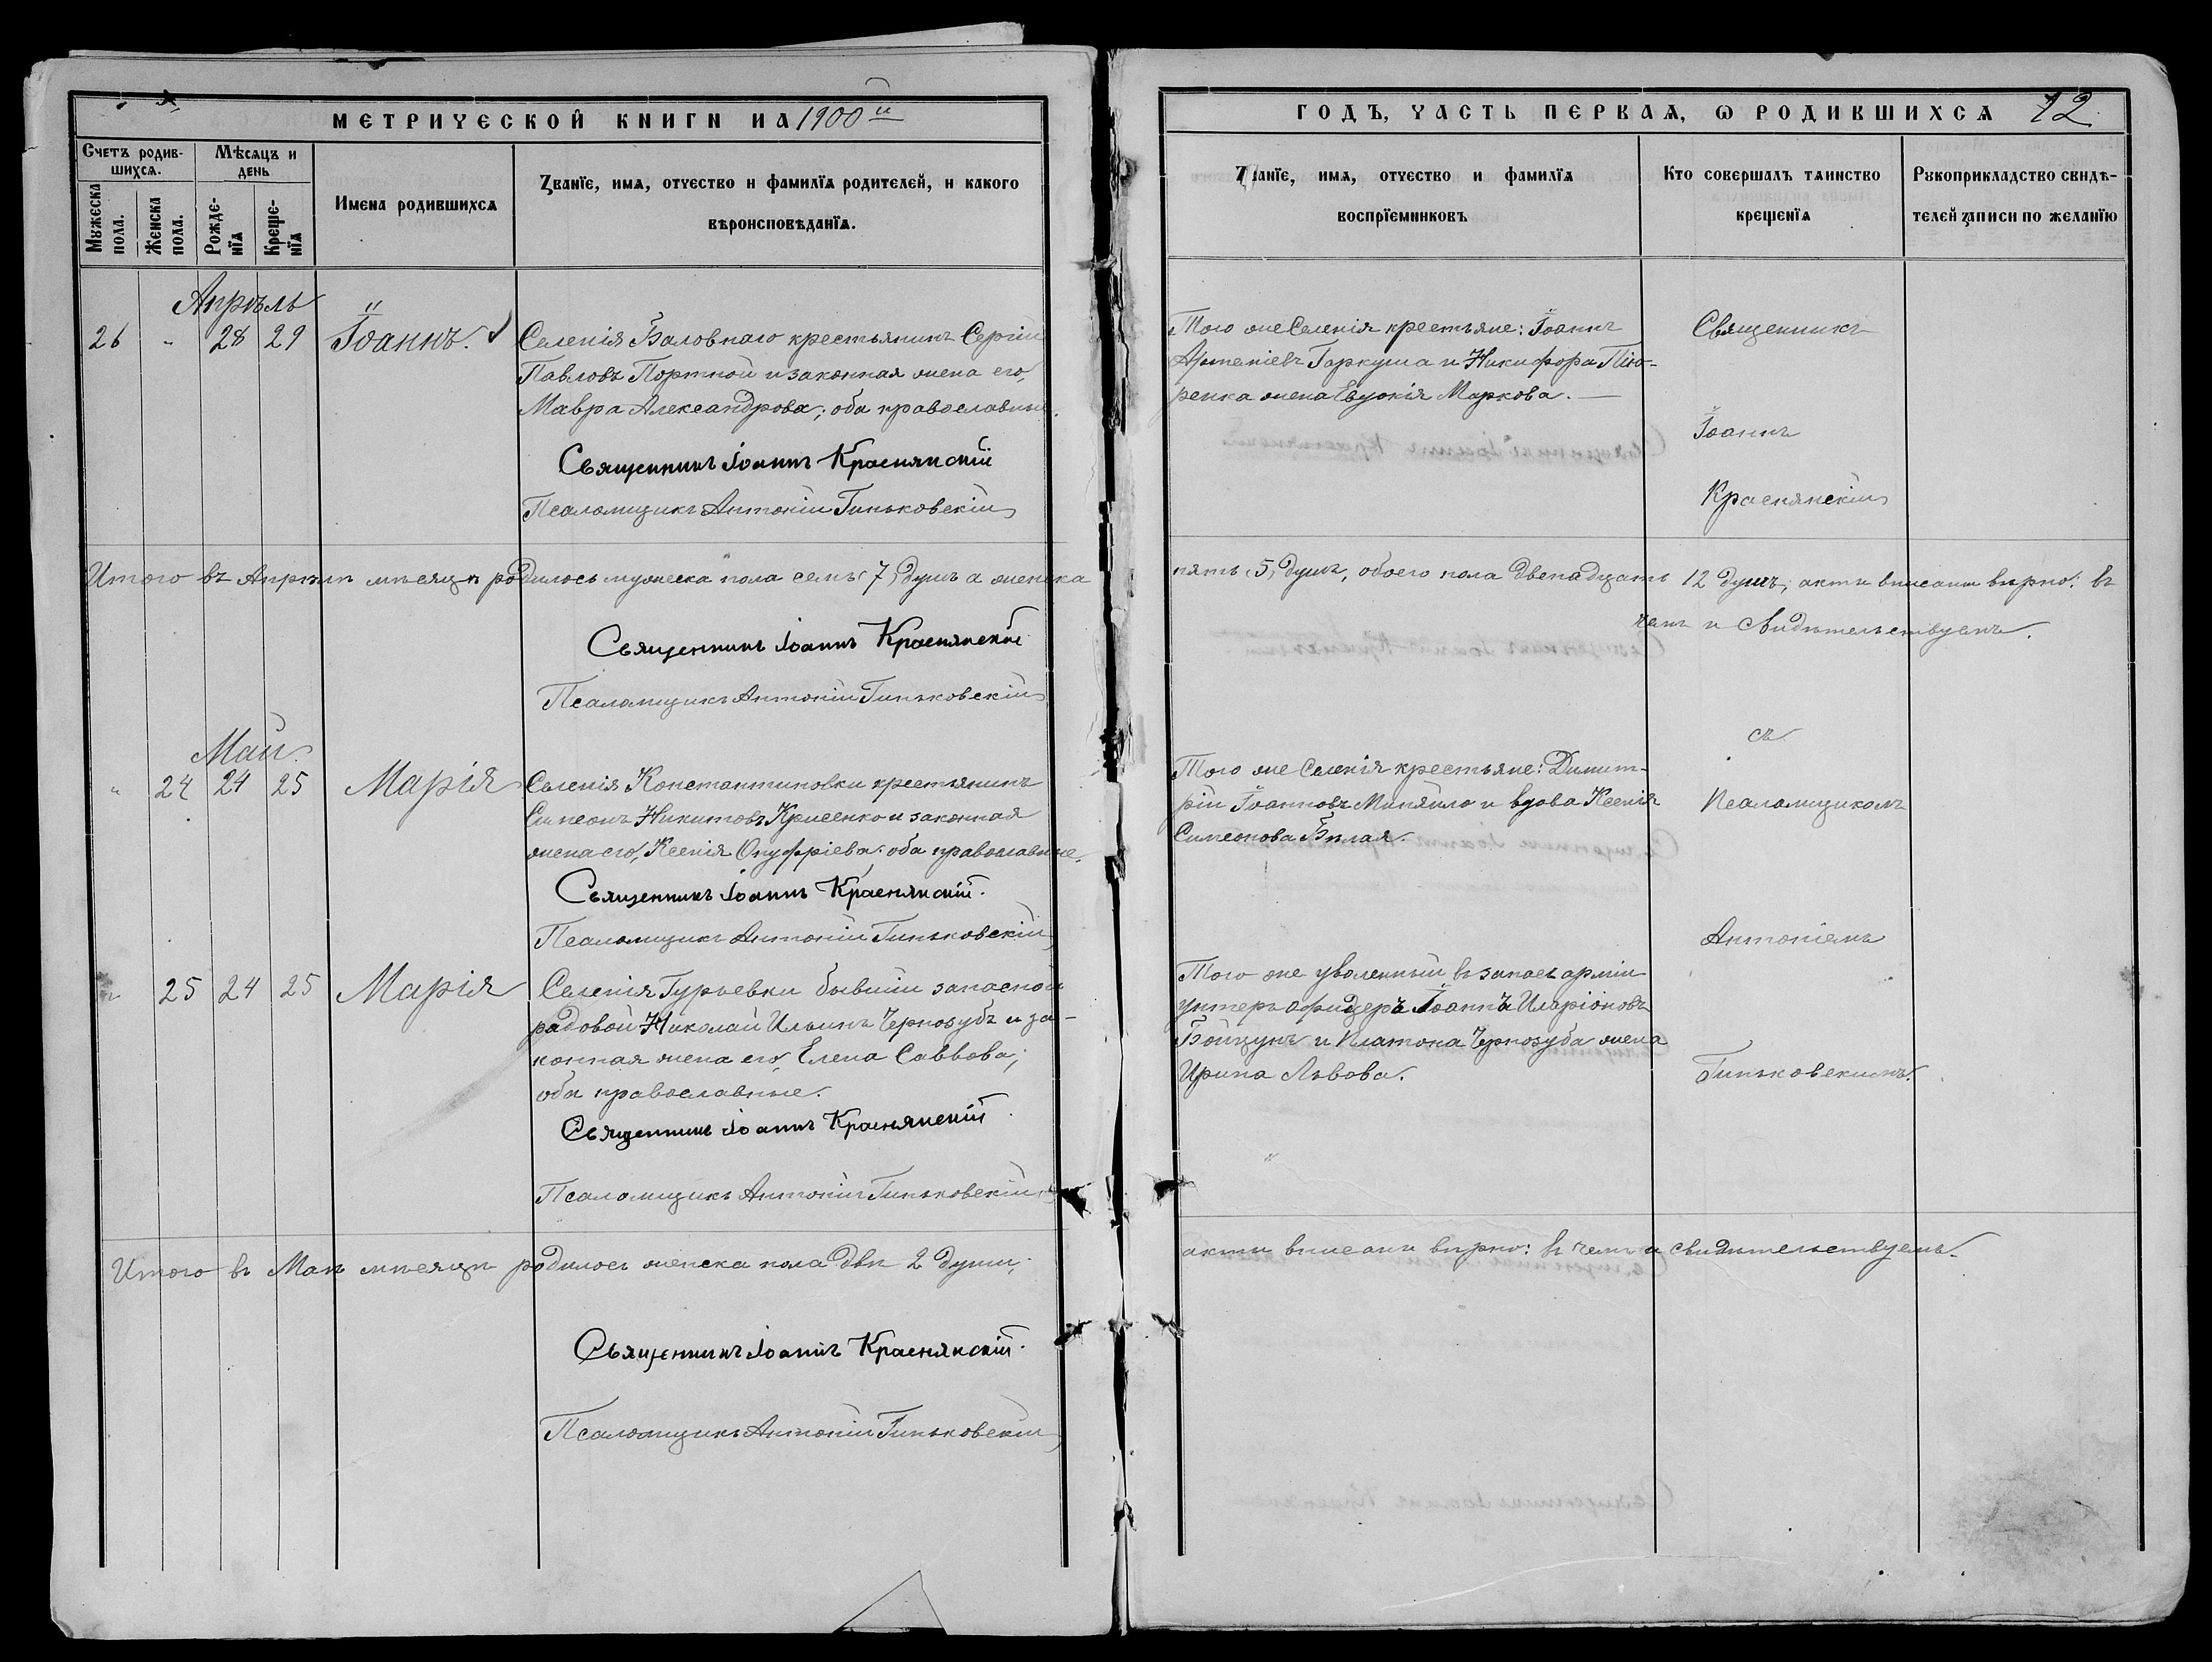 МЕТРИЧЕСКОЙ КНИГИ НА 1900й
Счетъ родив-
шихсѧ.
Мѣсѧцъ и
день
Мꙋжеска
пола.
Женска
пола.
Рожде-
нїѧ
Креще-
нїѧ
Имена родившихсѧ
Званїе, имѧ, отчество и фамилїѧ родителей, и какого
вѣроисповѣданїѧ.
Апрѣль
26 " 28 29 Іоаннъ.
Селенія Баловнаго крестьянинъ Сергій
Павловъ Портной и законная жена его,
Мавра Александрова; оба православные.
Священникъ Іоаннъ Краснянскій
Псаломщикъ Антоній Гиньковскій
Итого въ Апрѣлѣ мѣсяцѣ родилось мужеска пола семь 7, душъ а женска
Священникъ Іоаннъ Краснянскій
Псаломщикъ Антоній Гиньковскій
Май.
" 24 24 25 Марія
Селенія Константиновки крестьянинъ
Симеонъ Никитовъ Крисенко и законная
жена его, Ксенія Онуфріева: оба православные.
Священникъ Іоаннъ Краснянскій.
Псаломщикъ Антоній Гиньковскій
" 25 24 25 Марія
Селенія Гурьевки бывшій запасной
рядовой Николай Ильинъ Чернозубъ и за-
конная жена его, Елена Саввова;
оба православные.
Священникъ Іоаннъ Краснянскій.
Псаломщикъ Антоній Гиньковскій
Итого въ Маѣ мѣсяцѣ родилось женска пола двѣ 2 души;
Священникъ Іоаннъ Краснянскій.
Псаломщикъ Антоній Гиньковскій
ГОДЪ, ЧАСТЬ ПЕРВАѦ, Ѡ РОДИВШИХСѦ 12
Званїе, имѧ, отчество и фамилїѧ
воспрїемниковъ
Кто совершалъ таинство
крещенїѧ
Рꙋкоприкладство свидѣ-
телей записи по желанїю
Того же Селенія крестьяне: Іоаннъ
Артеміевъ Гаркуша и Никифора
жена Евдокія Маркова.
Священникъ
Іоаннъ
Краснянскій
пять, 5, душъ, обоего пола двенадцать 12 душъ; акты вписаны вѣрно: въ
чемъ и свидѣтельствуемъ.
Того же Селенія крестьяне: Димит-
рій Іоанновъ Миняйло и вдова Ксенія
Симеонова Бѣлая.
съ
Псаломщикомъ
Антоніемъ
Гиньковскимъ.
Того же уволенный въ запасъ арміи
унтеръ офицеръ Іоаннъ Иларіоновъ
Бойцунъ и Платона Чернозуба жена
Ирина Львова.
акты вписаны вѣрно: въ чемъ и свидѣтельствуемъ.